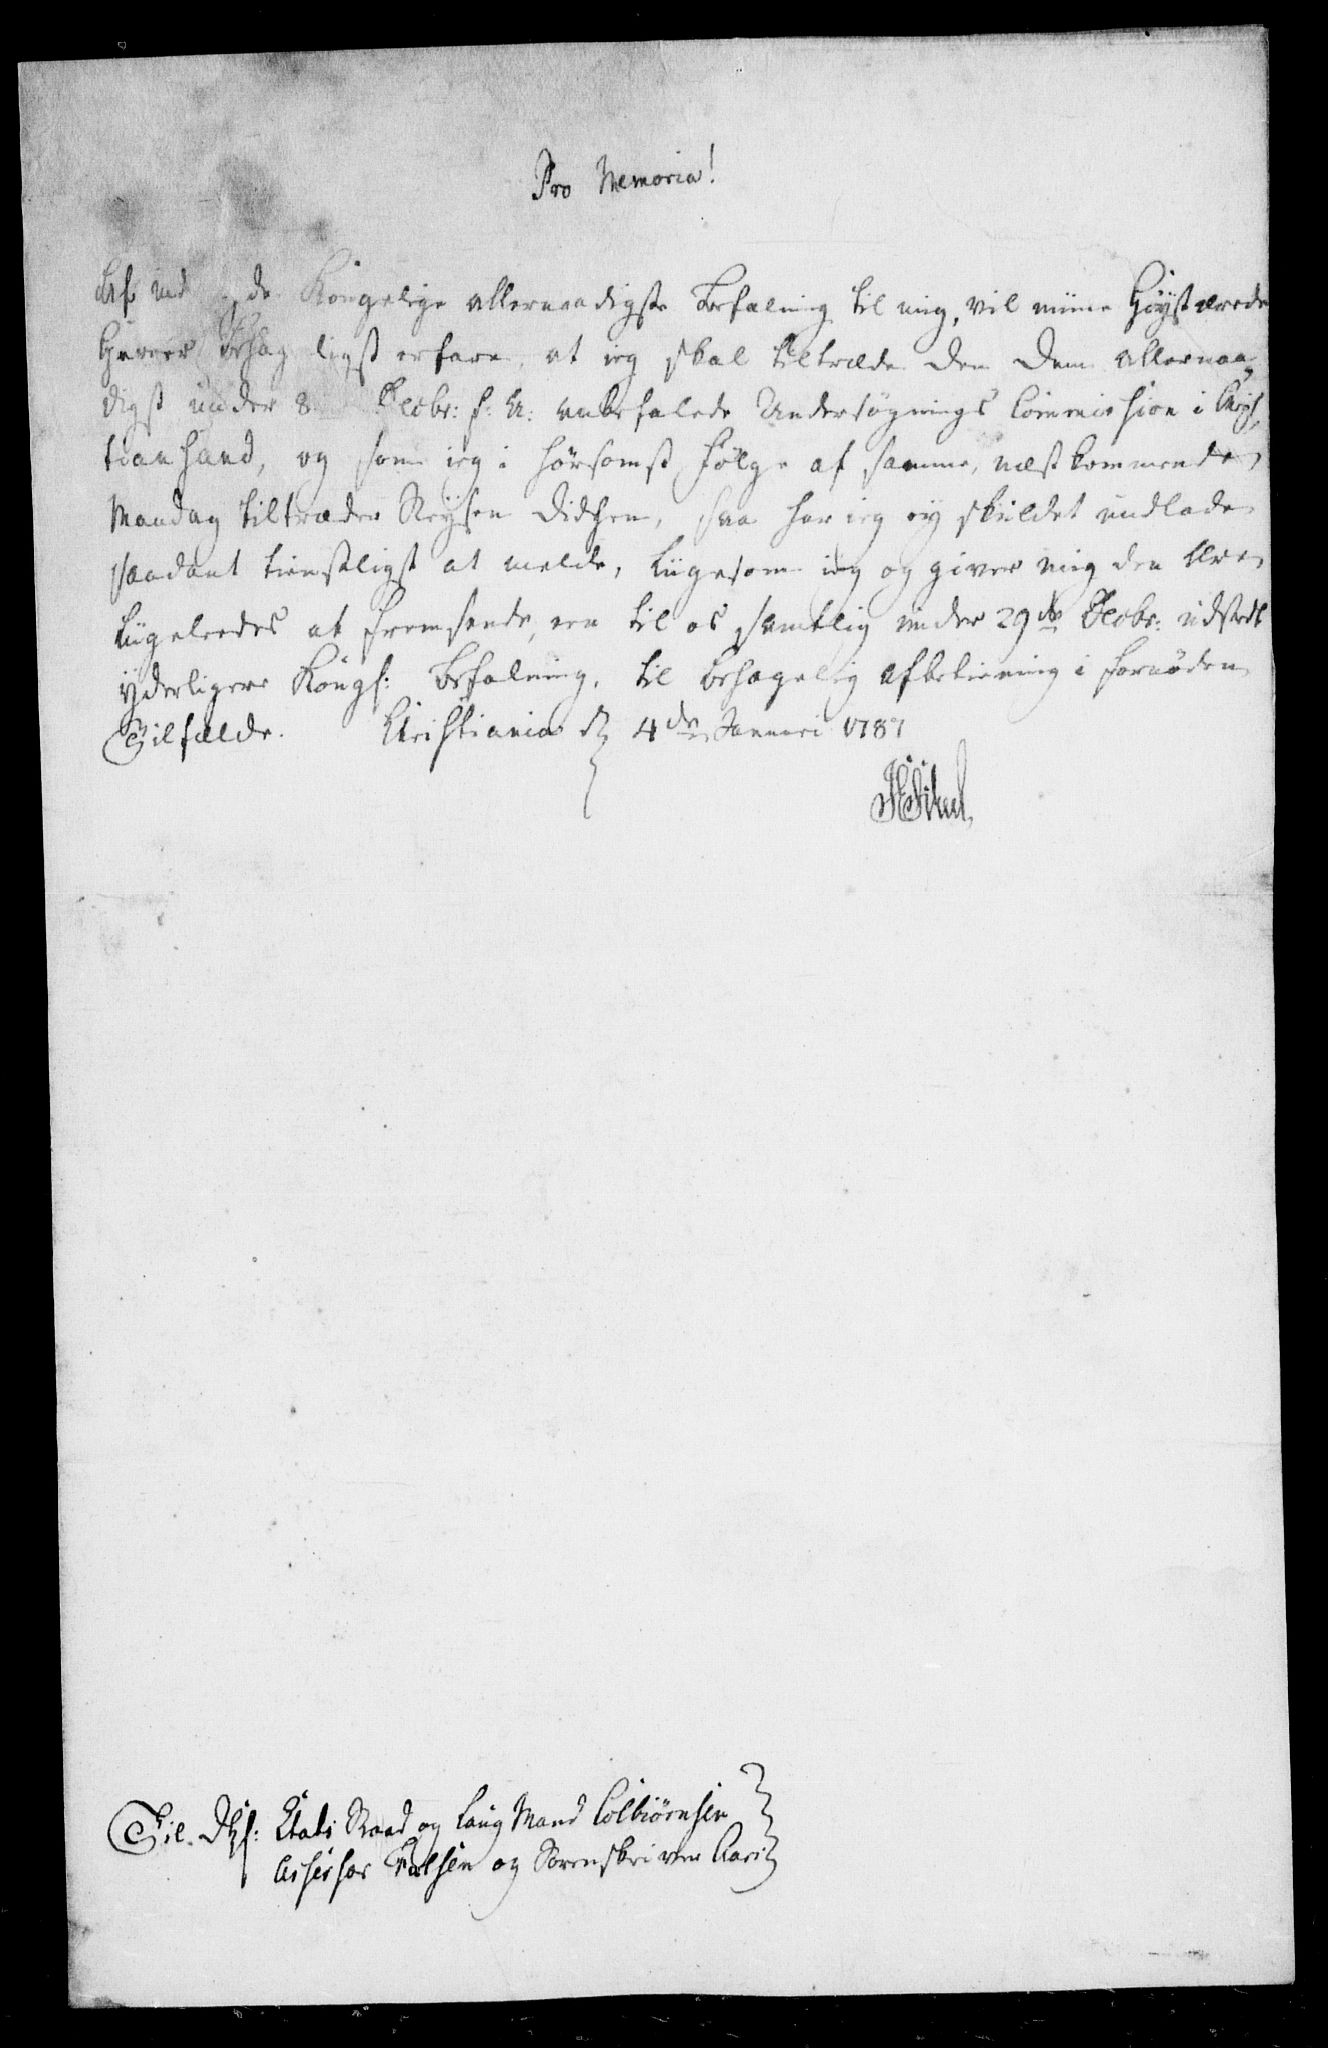 Pro Memoria!
Af ved de Kongelige allernaadigste Befaling til mig, vil miine Høyst ærede
Herrer behageligst erfare, at ieg skal tiltræde den Dem allernaa-
digst under 8 Decbr: f: A: anbefalede Undersøgnings Commission i Chris-
tiansand, og som ieg i hørsomst følge af samme, næstkommende
Mandag tiltræder Reysen didhen, saa har ieg ey skuldet undlade
saadant tienstligst at melde, liigesom ieg og giver mig den Ære
liigeledes at fremsende, een til os samtlig under 29de Decbr: udstedt
yderligere Kongl: Befalning, til behagelig afbetiening i fornøden
Tilfælde. Christiania d 4de Januari 1787
Til. Hr: Etats Raad og Laug Mand Colbiörnsen
Assessor Falsen og Sorenskriver